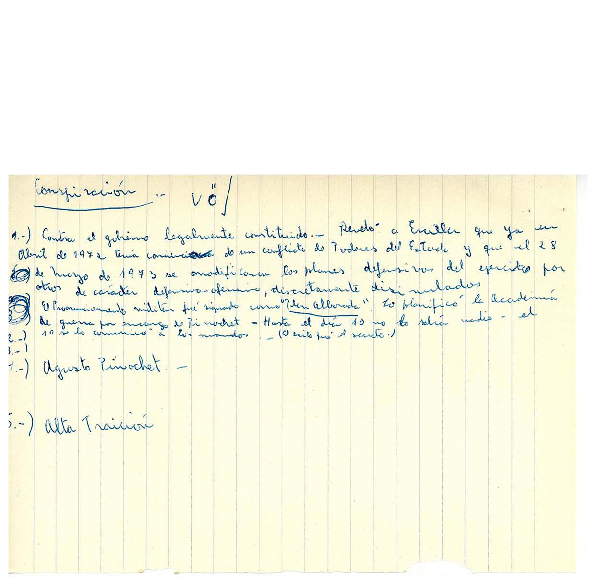 Conspiración .-
Vº
1.-) Contra el gobierno legalmente constituido.- Reveló a Ercilla que ya en
Abril de 1972 tenía de un conflicto de Poderes del Estado y que el 28
de marzo de 1973 se modificaron los planes defensivos del ejército por
otros de carácter defensivo-ofensivo, discretamente disimulados
El Pronunciamiento militar fué signado como "Plan Alborada". Lo planificó la Academia
de guerra por encargo de Pinochet - Hasta el día 10 no lo sabía nadie - el
2.-) 10 se lo comunicó a los mandos. - (O sea fué secreto.)
3.-)
4.-) Agusto Pinochet -
5.-) Alta Traición